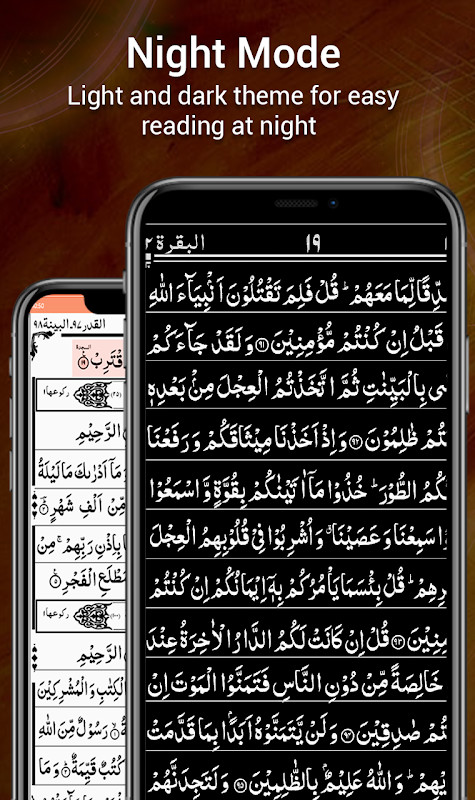 Night Mode
Light and dark theme for easy
reading at night
البقرة ٢
١٩
دِّقًا لِّمَا مَعَهُمْ ؕ قُلْ فَلِمَ تَقْتُلُوْنَ اَنْۢبِيَآءَ اللّٰهِ
قَبْلُ اِنْ كُنْتُمْ مُّؤْمِنِيْنَ ﴿۹۱﴾ وَلَقَدْ جَآءَكُمْ
سٰى بِالْبَيِّنٰتِ ثُمَّ اتَّخَذْتُمُ الْعِجْلَ مِنْۢ بَعْدِهٖ
تُمْ ظٰلِمُوْنَ ﴿۹۲﴾ وَاِذْ اَخَذْنَا مِيْثَاقَكُمْ وَرَفَعْنَا
كُمُ الطُّوْرَ ؕ خُذُوْا مَاۤ اٰتَيْنٰكُمْ بِقُوَّةٍ وَّاسْمَعُوْا
وْا سَمِعْنَا وَعَصَيْنَا ۗ وَاُشْرِبُوْا فِيْ قُلُوْبِهِمُ الْعِجْلَ
رِهِمْ ؕ قُلْ بِئْسَمَا يَاْمُرُكُمْ بِهٖۤ اِيْمَانُكُمْ اِنْ كُنْتُمْ
مِنِيْنَ ﴿۹۳﴾ قُلْ اِنْ كَانَتْ لَكُمُ الدَّارُ الْاٰخِرَةُ عِنْدَ
خَالِصَةً مِّنْ دُوْنِ النَّاسِ فَتَمَنَّوُا الْمَوْتَ اِنْ
تُمْ صٰدِقِيْنَ ﴿۹۴﴾ وَلَنْ يَّتَمَنَّوْهُ اَبَدًۢا بِمَا قَدَّمَتْ
يْهِمْ ؕ وَاللّٰهُ عَلِيْمٌۢ بِالظّٰلِمِيْنَ ﴿۹۵﴾ وَلَتَجِدَنَّهُمْ
القدر ٩٧، البينة ٩٨
قْتَرِبْ ﴿۱۹﴾
السجدة
ركوعها ١
الرَّحِيْمِ
وَمَاۤ اَدْرٰىكَ مَا لَيْلَةُ
مِّنْ اَلْفِ شَهْرٍ ﴿۳﴾
بِاِذْنِ رَبِّهِمْ ۚ مِنْ
مَطْلَعِ الْفَجْرِ ﴿۵﴾
ركوعها ١
الرَّحِيْمِ
الْكِتٰبِ وَالْمُشْرِكِيْنَ
رَسُوْلٌ مِّنَ اللّٰهِ
كُتُبٌ قَيِّمَةٌ ﴿۳﴾ وَمَا